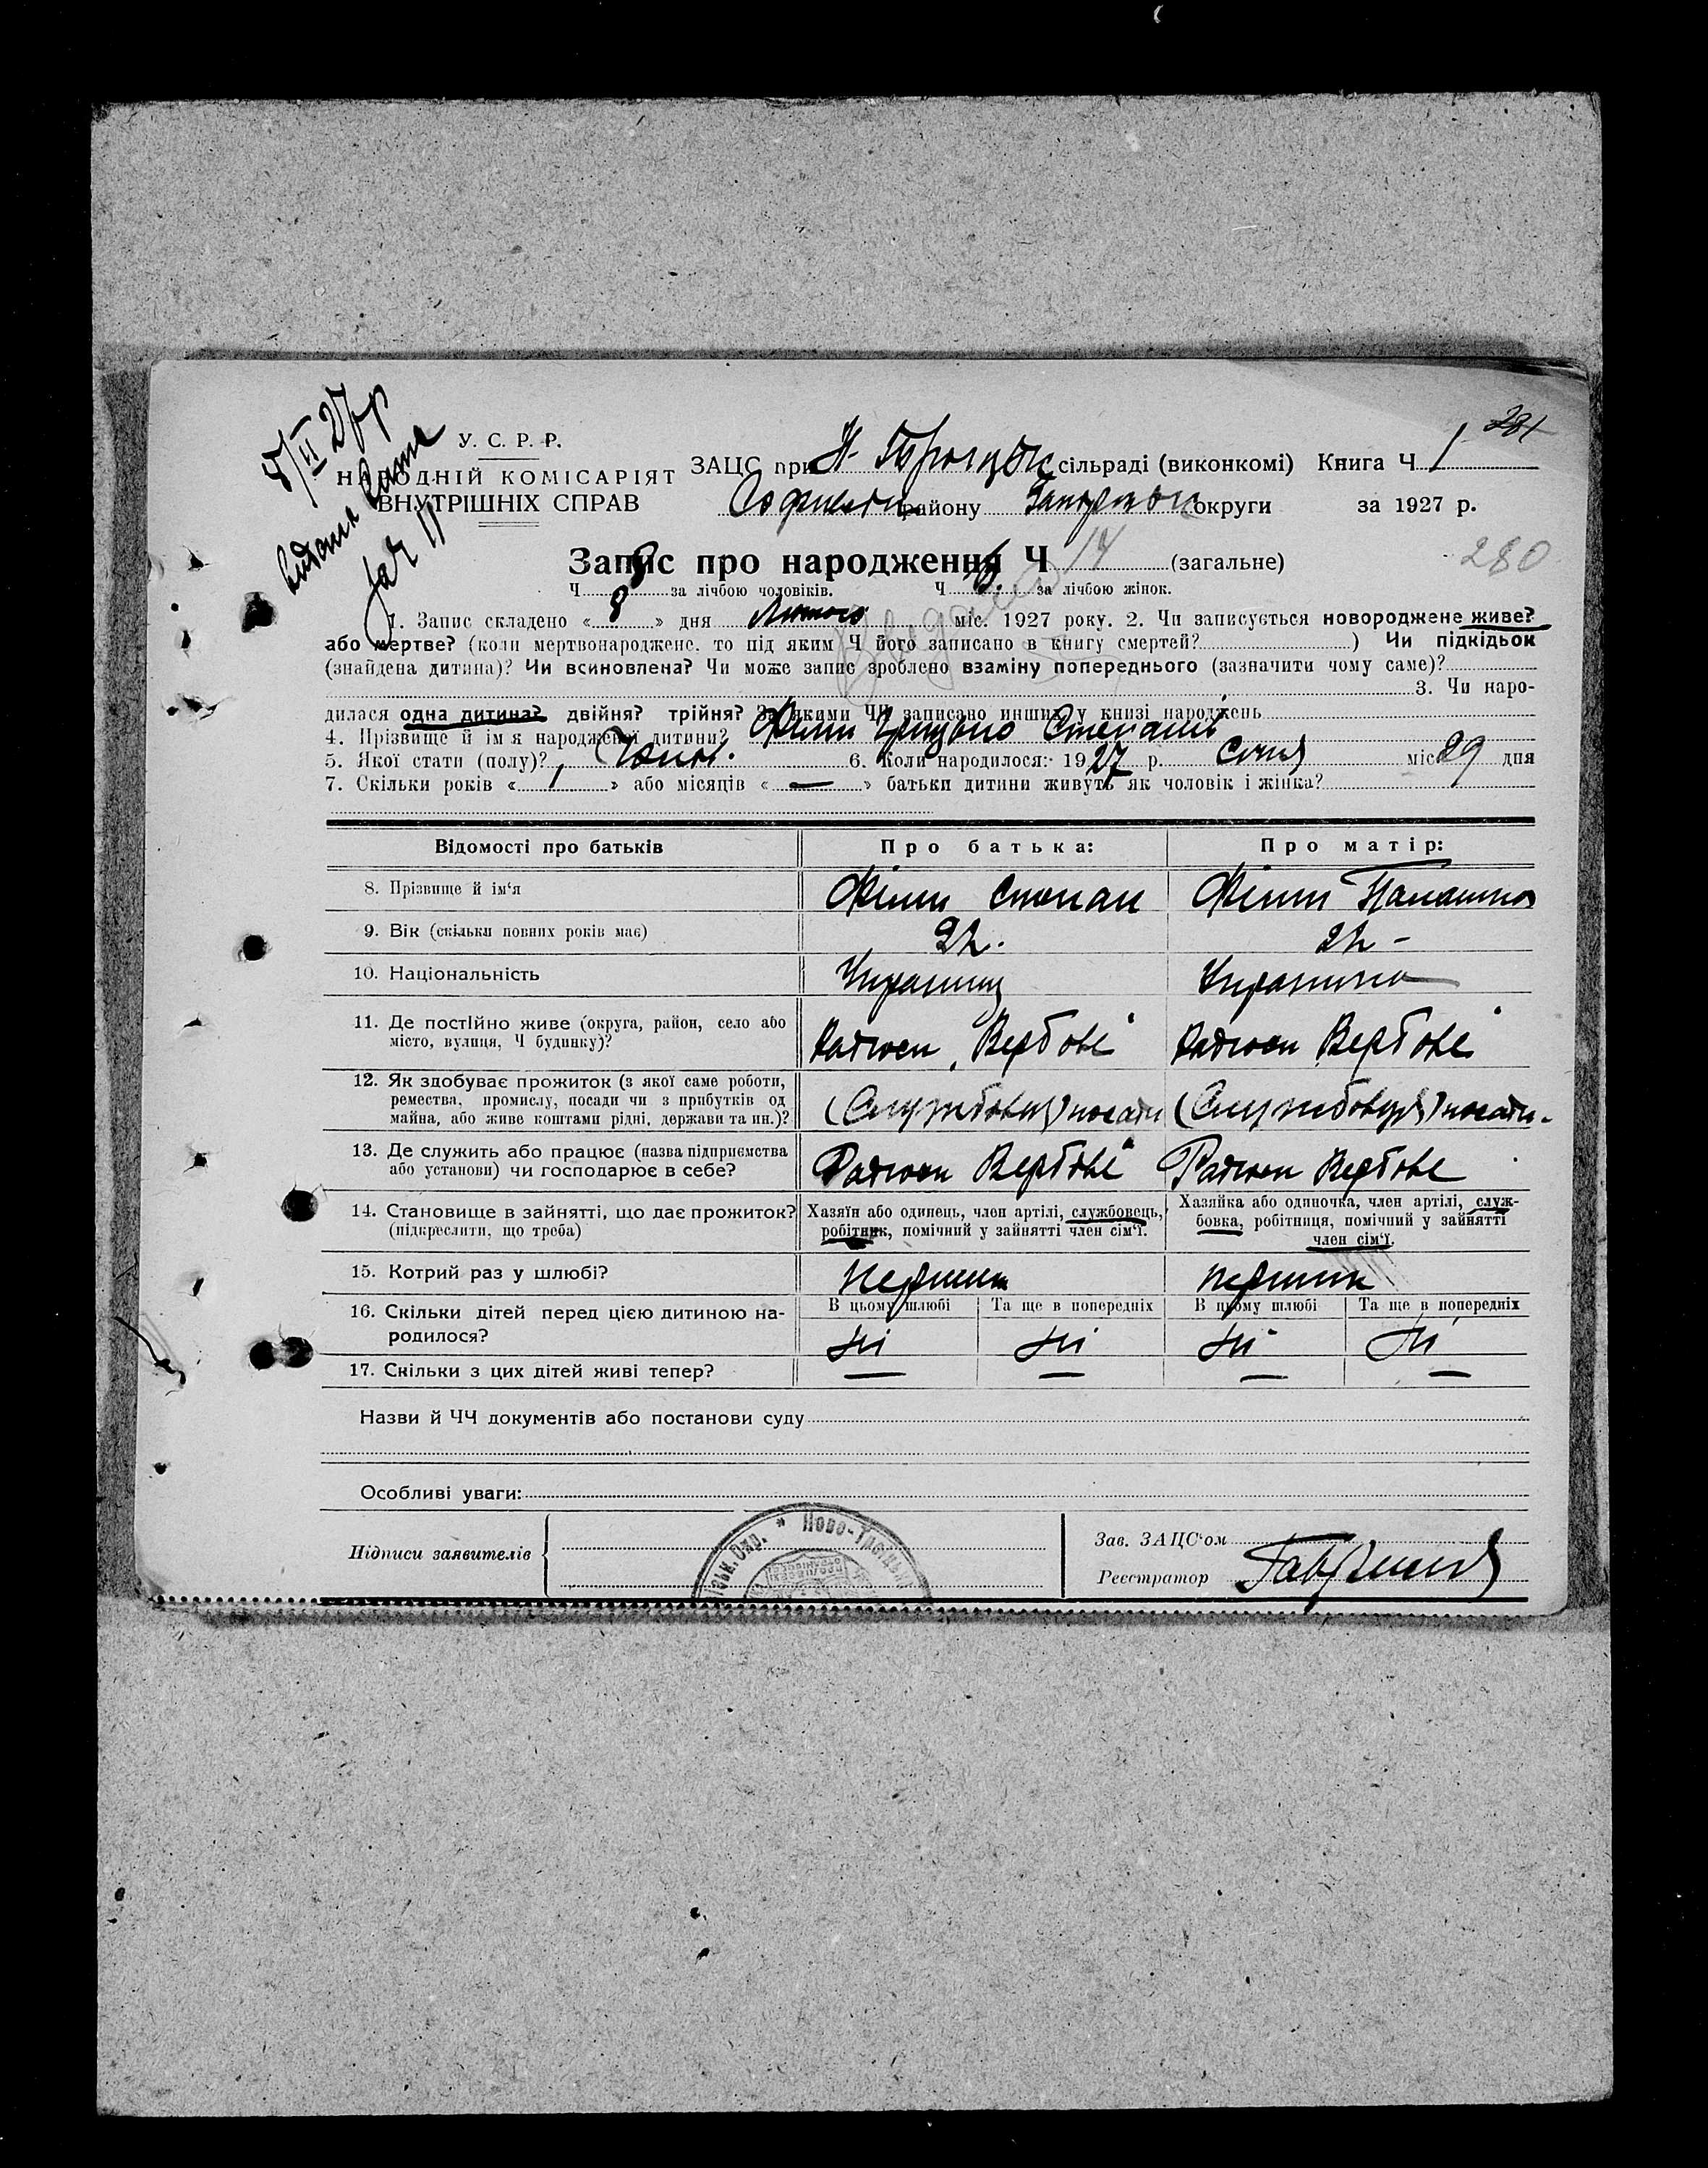 281
У. С. Р. Р.
НАРОДНІЙ КОМІСАРІЯТ
ВНУТРІШНІХ СПРАВ
ЗАЦС при сільраді (виконкомі) Книга Ч 1
району округи за 1927 р.
Запис про народження Ч 14 (загальне)
280
Ч 8 за лічбою чоловіків. Ч 6. за лічбою жінок.
1. Запис складено « 8 » дня Лютого міс. 1927 року. 2. Чи записується новороджене живе?
або мертве? (коли мертвонароджене, то під яким Ч його записано в книгу смертей? ) Чи підкідьок
(знайдена дитина)? Чи всиновлена? Чи може запис зроблено взаміну попереднього (зазначити чому саме)?
3. Чи наро-
дилася одна дитина? двійня? трійня? За якими ЧЧ записано инших у книзі народжень
4. Прізвище й ім'я народженої дитини?
5. Якої стати (полу)? Чолов. 6. Коли народилося: 1927 р. Січня міс 29 дня
7. Скільки років « 1 » або місяців « — » батьки дитини живуть як чоловік і жінка?
Відомості про батьків Про батька: Про матір:
8. Прізвище й ім'я Степан
9. Вік (скільки повних років має)
10. Національність Українец Українка
11. Де постійно живе (округа, район, село або
місто, вулиця, Ч будинку)? Радгосп „Вербове" Радгосп „Вербове"
12. Як здобуває прожиток (з якої саме роботи,
ремества, промислу, посади чи з прибутків од
майна, або живе коштами рідні, держави та ин.)? (Службовец) посади (Службовця) посади.
13. Де служить або працює (назва підприємства
або установи) чи господарює в себе? Радгосп Вербове Радгосп Вербове
14. Становище в зайнятті, що дає прожиток?
(підкреслити, що треба)
Хазяїн або одинець, член артілі, службовець,
робітник, помічний у зайнятті член сім'ї.
Хазяйка або одиночка, член артілі, служ-
бовка, робітниця, помічний у зайнятті
член сім'ї.
15. Котрий раз у шлюбі? Перший перший
16. Скільки дітей перед цією дитиною на-
родилося?
В цьому шлюбі Та ще в попередніх В цьому шлюбі Та ще в попередніх
Ні Ні Ні Ні
17. Скільки з цих дітей живі тепер? — — — —
Назви й ЧЧ документів або постанови суду
Особливі уваги:
Підписи заявителів
Зав. ЗАЦС'ом
Реєстратор